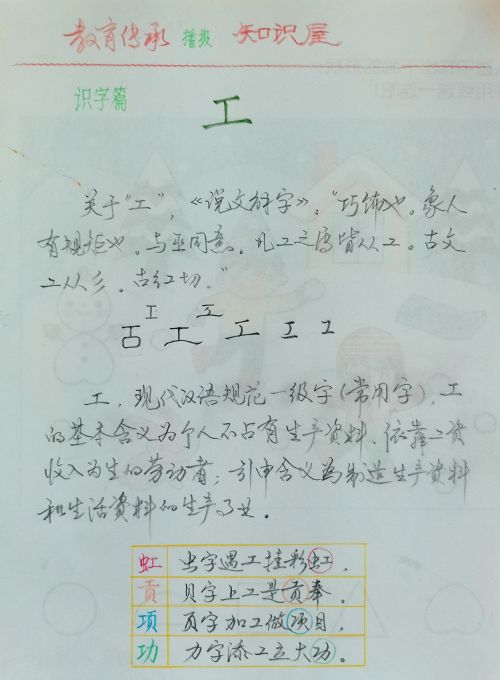 教育传承 播报 知识屋
识字篇
工
关于"工",《说文解字》:"巧饰也。象人
有规矩也。与巫同意。凡工之属皆从工。古文
工从彡。古红切。"
工,现代汉语规范一级字(常用字),工
的基本含义为个人不占有生产资料、依靠工资
收入为生的劳动者;引申含义为制造生产资料
和生活资料的生产事业。
虹 虫字遇工挂彩虹,
贡 贝字上工是贡奉。
项 页字加工做项目,
功 力字添工立大功。